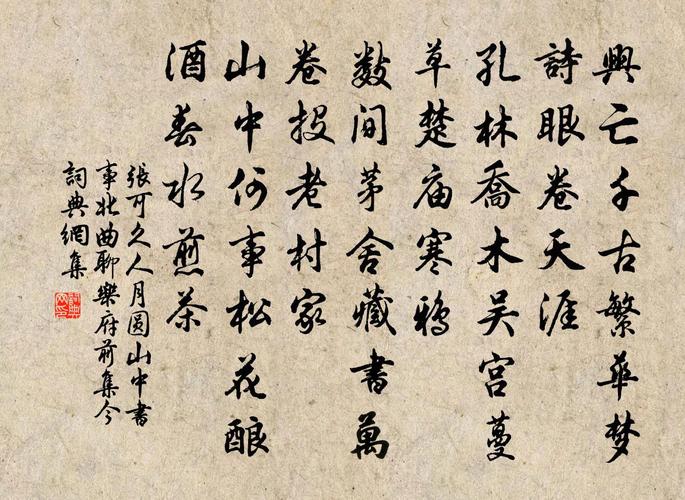 興亡千古繁華梦
詩眼卷天涯
孔林喬木吴宫蔓
草楚庙寒鸦
数间茅舍藏書萬
卷投老村家
山中何事松花酿
酒春水煎茶
張可久人月圆山中書
事北曲聊樂府前集今
詞典網集